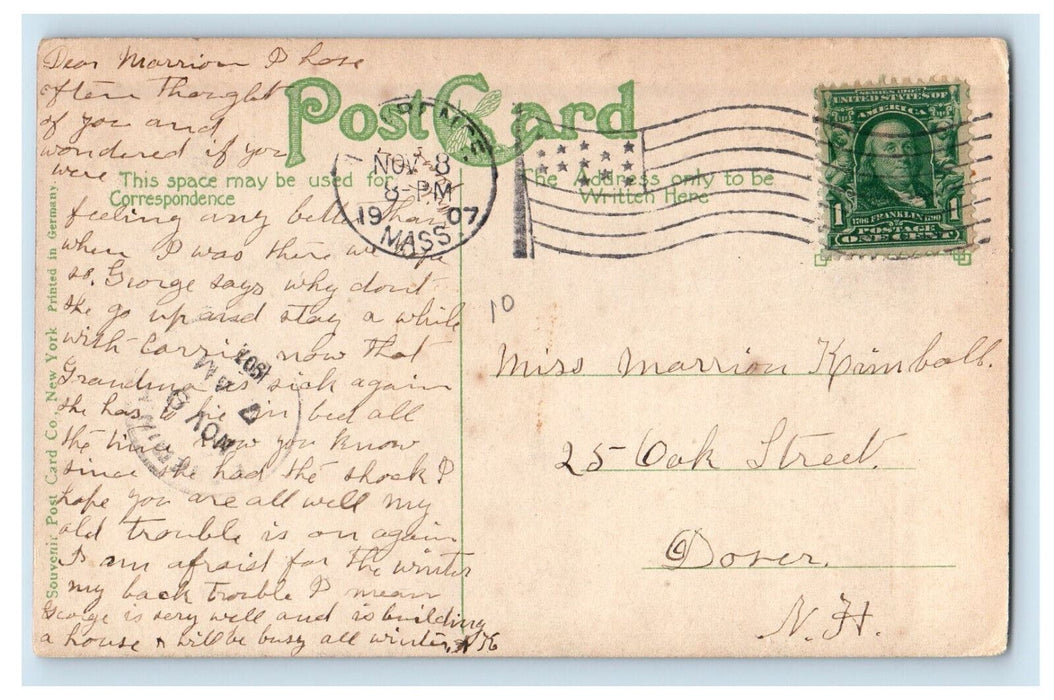 Dear Marrion I have
often thought
of you and
wondered if you
were
feeling any better than
when I was there we hope
so. George says why dont
she go up and stay a while
with Carrie now that
Grandma is sick again
she has to lie in bed all
the time now you know
since she had the shock I
hope you are all well my
old trouble is on again
I am afraid for the winter
my back trouble I mean
George is very well and is building
a house & will be busy all winter,
Post Card
This space may be used for
Correspondence
The Address only to be
Written Here
NOV 8
8-PM
1907
MASS.
SERIES 1902
UNITED STATES OF
AMERICA
1 1706 FRANKLIN 1790 1
POSTAGE
ONE CENT
10
Miss Marrion Kimball.
25 Oak Street.
Dover.
N.H.
NOV 9
7 AM
1907
Souvenir Post Card Co., New York Printed in Germany.